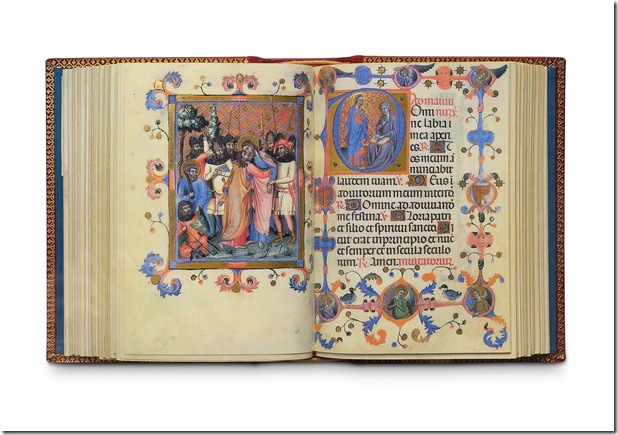 Domi
ne labia
mea aperi
es. R. Et
os meum a
nunciabit
laudem tuam. V. Deus i
adiutorium meum intende
R. Domine ad adiuvandum
me festina. V. Gloria patri
et filio et spiritui sancto. S
icut erat in principio et nuc
et semper et in secula seculo
rum. R. Amen. Invitatorium.